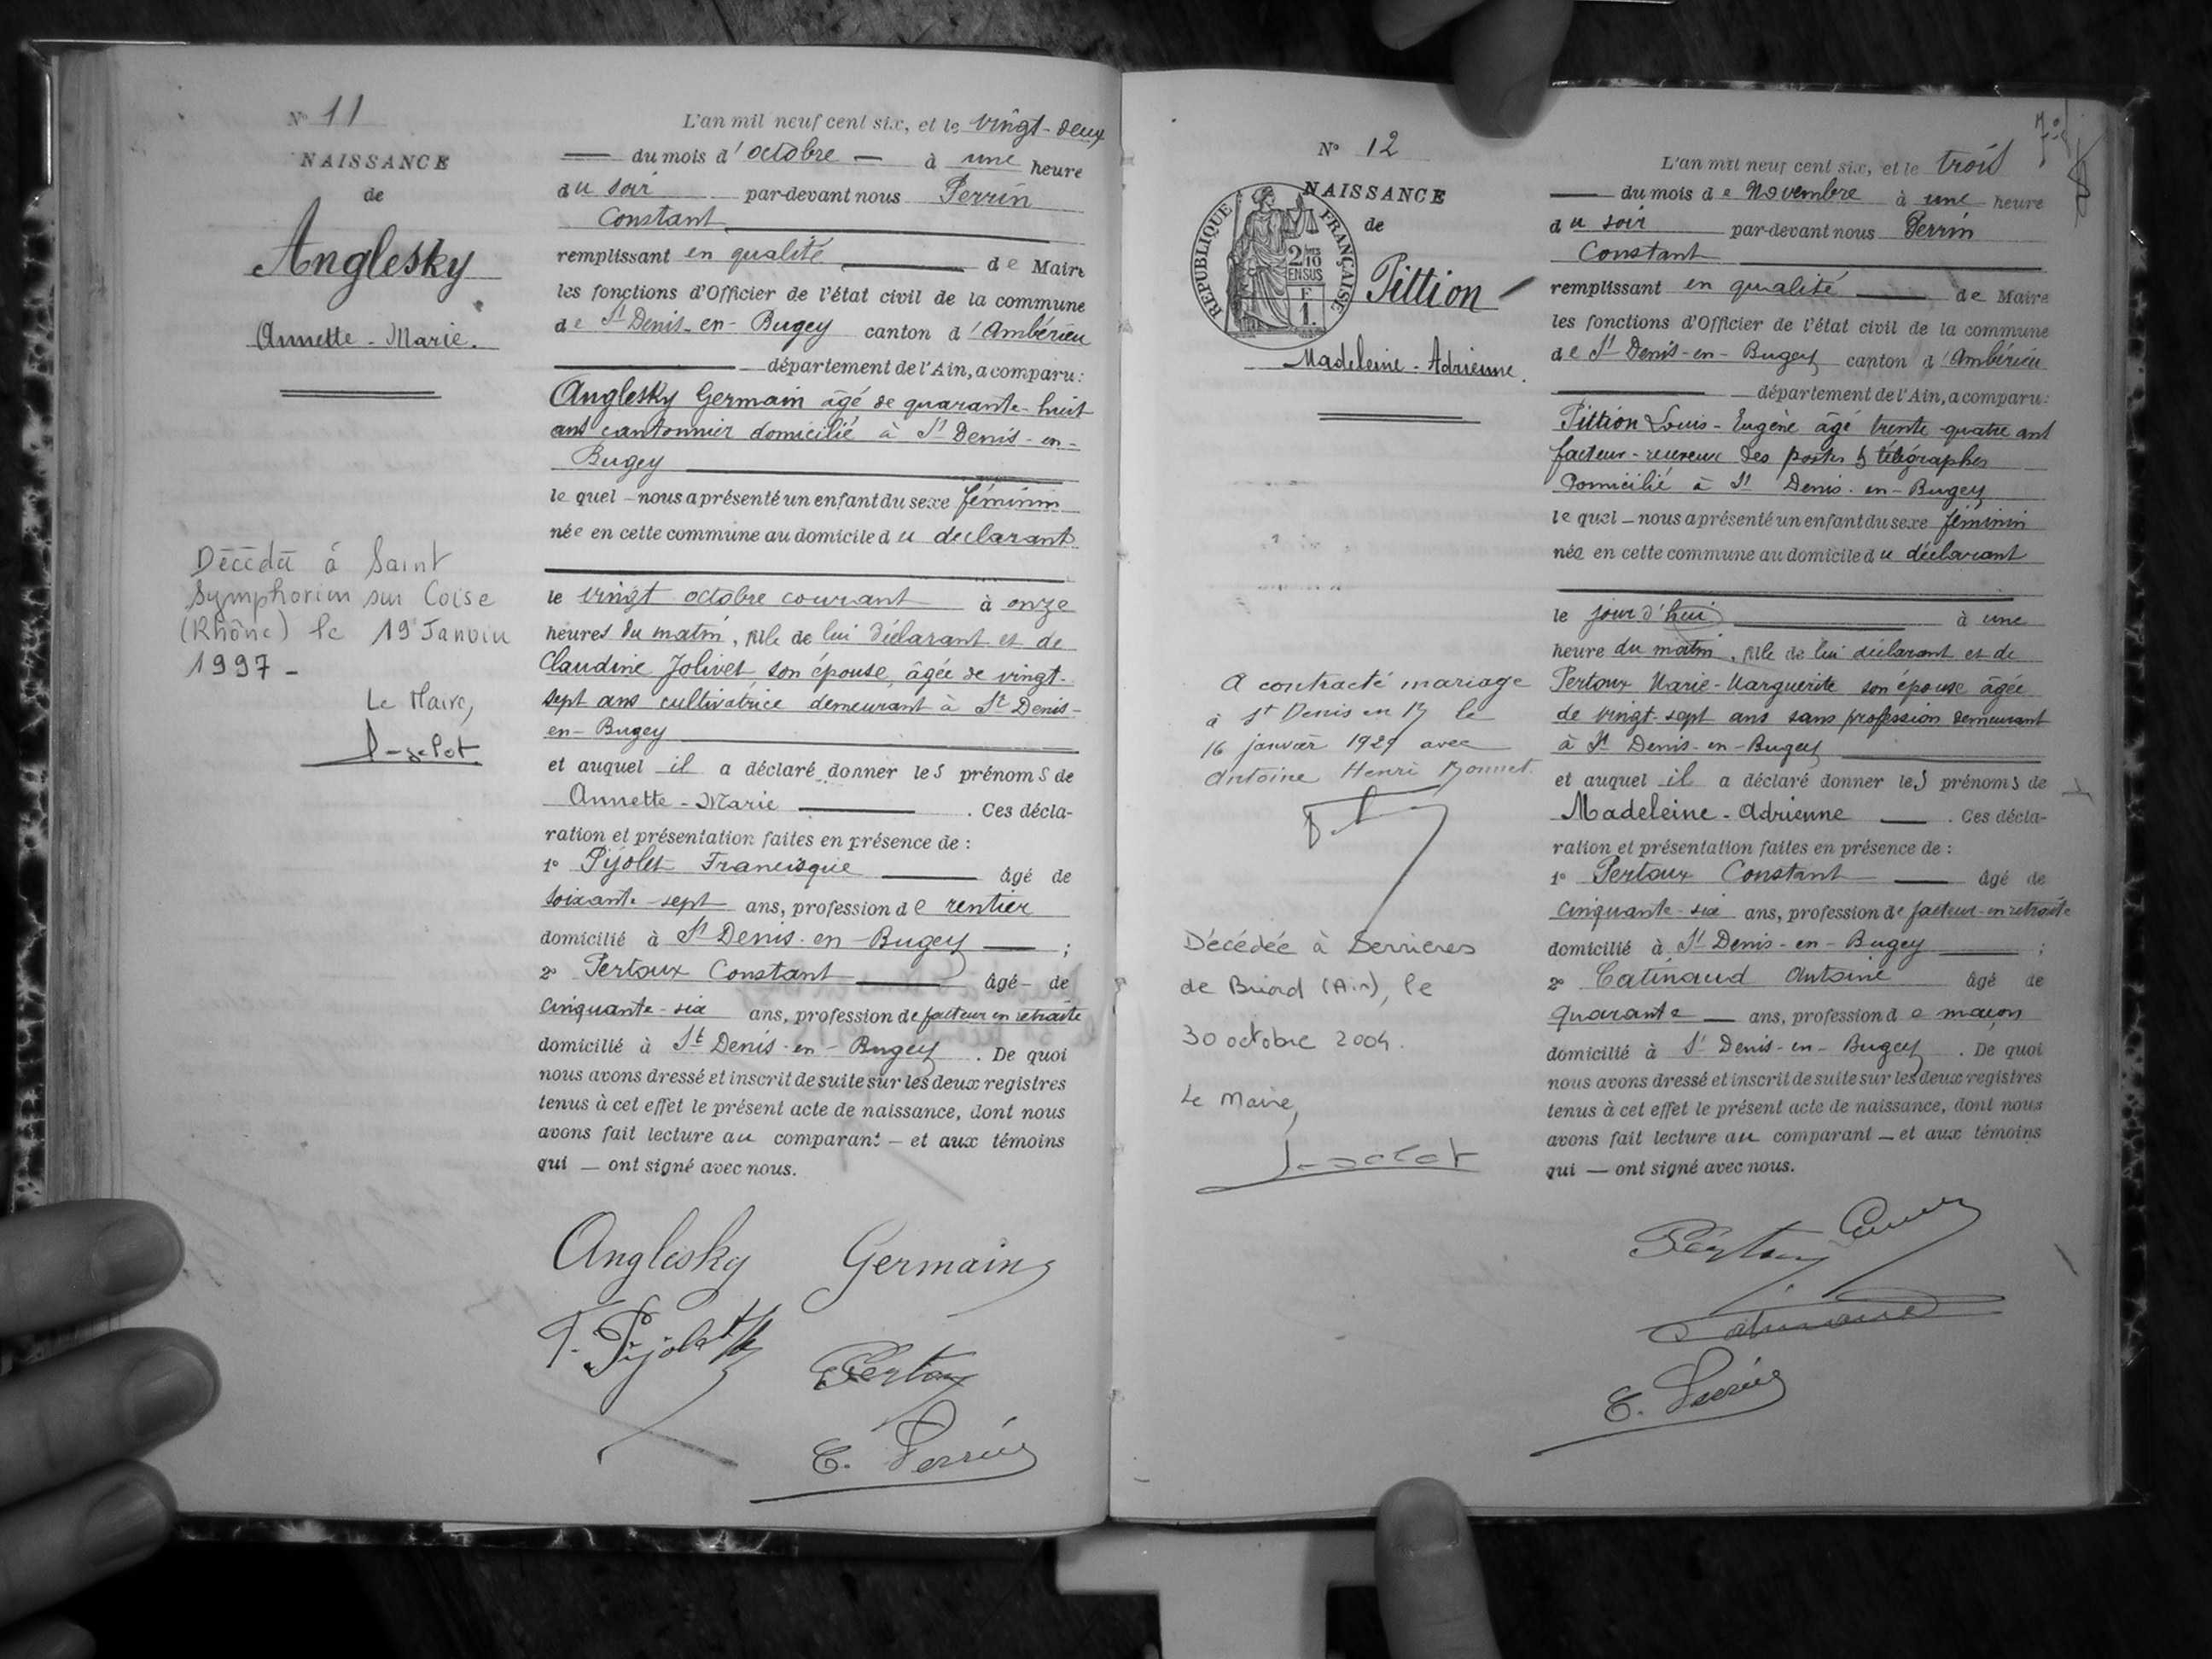 N° 11
NAISSANCE
de
Anglesky
Annette - Marie.
Décédée à Saint
Symphorien sur Coise
(Rhône) le 19 Janvier
1997 -
Le Maire,
L'an mil neuf cent six, et le vingt-deux
du mois d'octobre à une heure
du soir par-devant nous Perrin
Constant
remplissant en qualité de Maire
les fonctions d'Officier de l'état civil de la commune
de St Denis-en-Bugey canton d'Ambérieu
département de l'Ain, a comparu:
Anglesky Germain âgé de quarante-huit
ans cantonnier domicilié à St Denis-en-
Bugey
lequel nous a présenté un enfant du sexe féminin
née en cette commune au domicile du déclarant
le vingt octobre courant à onze
heures du matin, fille de lui déclarant et de
Claudine Jolivet son épouse, âgée de vingt-
sept ans cultivatrice demeurant à St Denis-
en-Bugey
et auquel il a déclaré donner les prénoms de
Annette - Marie . Ces décla-
ration et présentation faites en présence de :
1° Pijolet Francisque âgé de
soixante-sept ans, profession de rentier
domicilié à St Denis-en-Bugey ;
2° Pertoux Constant âgé de
cinquante-six ans, profession de facteur en retraite
domicilié à St Denis-en-Bugey . De quoi
nous avons dressé et inscrit de suite sur les deux registres
tenus à cet effet le présent acte de naissance, dont nous
avons fait lecture au comparant et aux témoins
qui ont signé avec nous.
Anglesky Germain
F. Pijolet
Pertoux
C. Perrin
N° 12
NAISSANCE
de
RÉPUBLIQUE FRANÇAISE
2/10
EN SUS
F
1.
Pittion
Madeleine - Adrienne.
A contracté mariage
à St Denis en B le
16 janvier 1929 avec
Antoine Henri Bonnet.
Décédée à Serrières
de Briord (Ain), le
30 octobre 2004.
Le Maire,
L'an mil neuf cent six, et le trois
du mois de Novembre à une heure
du soir par-devant nous Perrin
Constant
remplissant en qualité de Maire
les fonctions d'Officier de l'état civil de la commune
de St Denis-en-Bugey canton d'Ambérieu
département de l'Ain, a comparu:
Pittion Louis-Eugène âgé trente-quatre ans
facteur-receveur des postes & télégraphes
Domicilié à St Denis-en-Bugey
lequel nous a présenté un enfant du sexe féminin
née en cette commune au domicile du déclarant
le jour d'hui à une
heure du matin, fille de lui déclarant et de
Pertoux Marie-Marguerite son épouse âgée
de vingt-sept ans sans profession demeurant
à St Denis-en-Bugey
et auquel il a déclaré donner les prénoms de
Madeleine - Adrienne . Ces décla-
ration et présentation faites en présence de :
1° Pertoux Constant âgé de
cinquante-six ans, profession de facteur-en retraite
domicilié à St Denis-en-Bugey ;
2° Catinaud Antoine âgé de
quarante ans, profession de maçon
domicilié à St Denis-en-Bugey . De quoi
nous avons dressé et inscrit de suite sur les deux registres
tenus à cet effet le présent acte de naissance, dont nous
avons fait lecture au comparant et aux témoins
qui ont signé avec nous.
Pertoux
Catinaud
C. Perrin